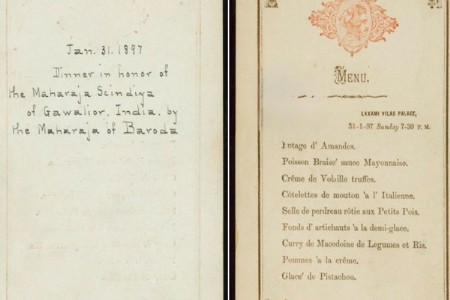 Jan. 31. 1897
Dinner in honor of
the Maharaja Scindiya
of Gawalior, India, by
the Maharaja of Baroda
MENU.
LAXAMI VILAS PALACE,
31-1-97 Sunday 7-30 P. M.
Potage d' Amandes.
Poisson Braise' sauce Mayonnaise.
Crême de Volaille truffes.
Côtelettes de mouton 'a l' Italienne.
Selle de perdreau rôtie aux Petits Pois.
Fonds d' artichauts 'a la demi-glace.
Curry de Macedoine de Legumes et Ris.
Pommes 'a la crême.
Glace' de Pistachou.